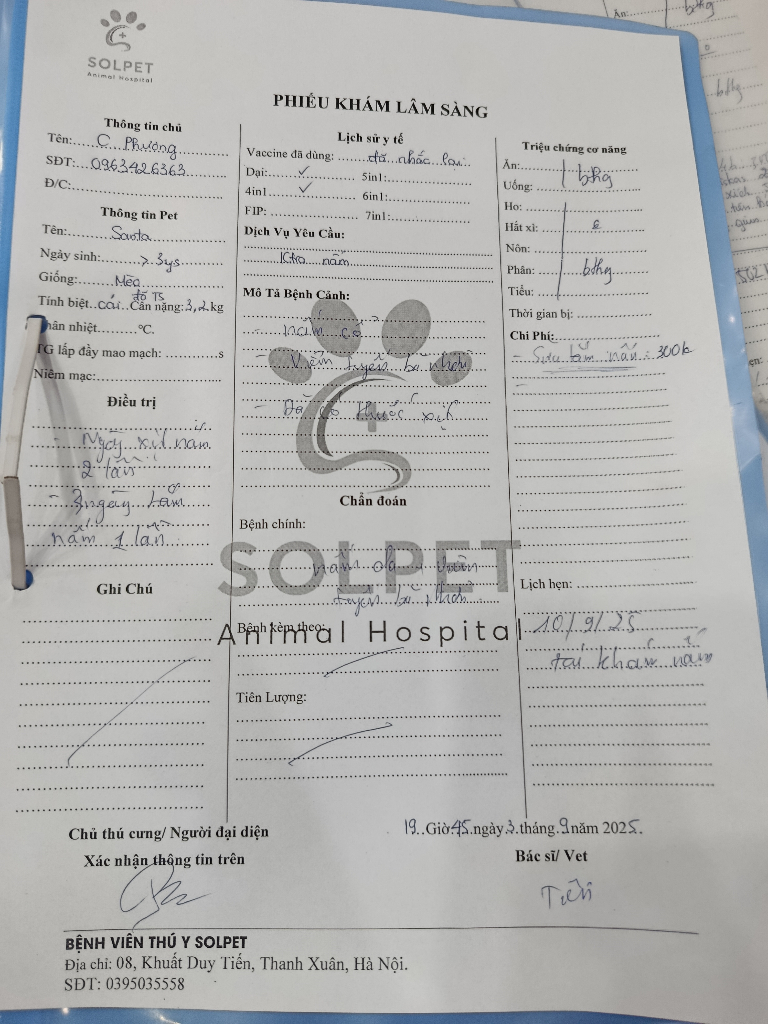 SOLPET
Animal Hospital
PHIẾU KHÁM LÂM SÀNG
Thông tin chủ
Tên: C Phương
SĐT: 0963426363
Đ/C:
Thông tin Pet
Tên: Santa
Ngày sinh: > 3ys
Giống: Mèo
đã TS
Tính biệt: cái Cân nặng: 3,2 kg
Thân nhiệt: °C.
TG lấp đầy mao mạch: s
Niêm mạc:
Điều trị
- Ngày xịt nấm
2 lần
- 3 ngày tắm
nấm 1 lần
Ghi Chú
Lịch sử y tế
Vaccine đã dùng: đã nhắc lại
Dại: ✓ 5in1:
4in1 ✓ 6in1:
FIP: 7in1:
Dịch Vụ Yêu Cầu:
Ktra nấm
Mô Tả Bệnh Cảnh:
- nấm cổ
- Viêm tuyến bã nhờn
- Đã có thuốc xịt
Chẩn đoán
Bệnh chính:
nấm da, viêm
tuyến bã nhờn
Bệnh kèm theo:
Tiên Lượng:
Triệu chứng cơ năng
Ăn:
Uống: bthg
Ho:
Hắt xì:
Nôn:
Phân: bthg
Tiểu:
Thời gian bị:
Chi Phí:
- Sữa tắm nấm: 300k
Lịch hẹn:
10/9/25
tái khám nấm
SOLPET
Animal Hospital
19 Giờ 45 ngày 3 tháng 9 năm 2025.
Chủ thú cưng/ Người đại diện
Xác nhận thông tin trên
Bác sĩ/ Vet
Tiến
BỆNH VIỆN THÚ Y SOLPET
Địa chỉ: 08, Khuất Duy Tiến, Thanh Xuân, Hà Nội.
SĐT: 0395035558